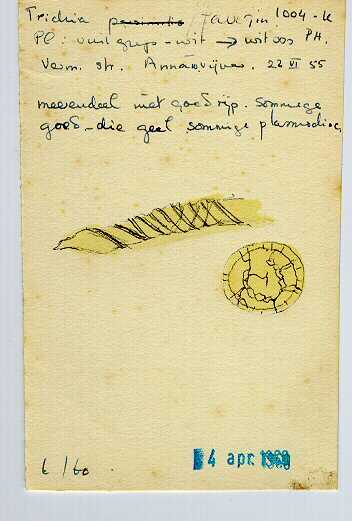 Trichia persimilis favogin. 1004-k
Pl: vuil grijs-wit → witros PH.
Verm. str. Annasvijver. 22 VI 55
meerendeel niet goed rijp. Sommige
goed - die geel sommige plasmodioc.
t /60.
4 apr. 1960